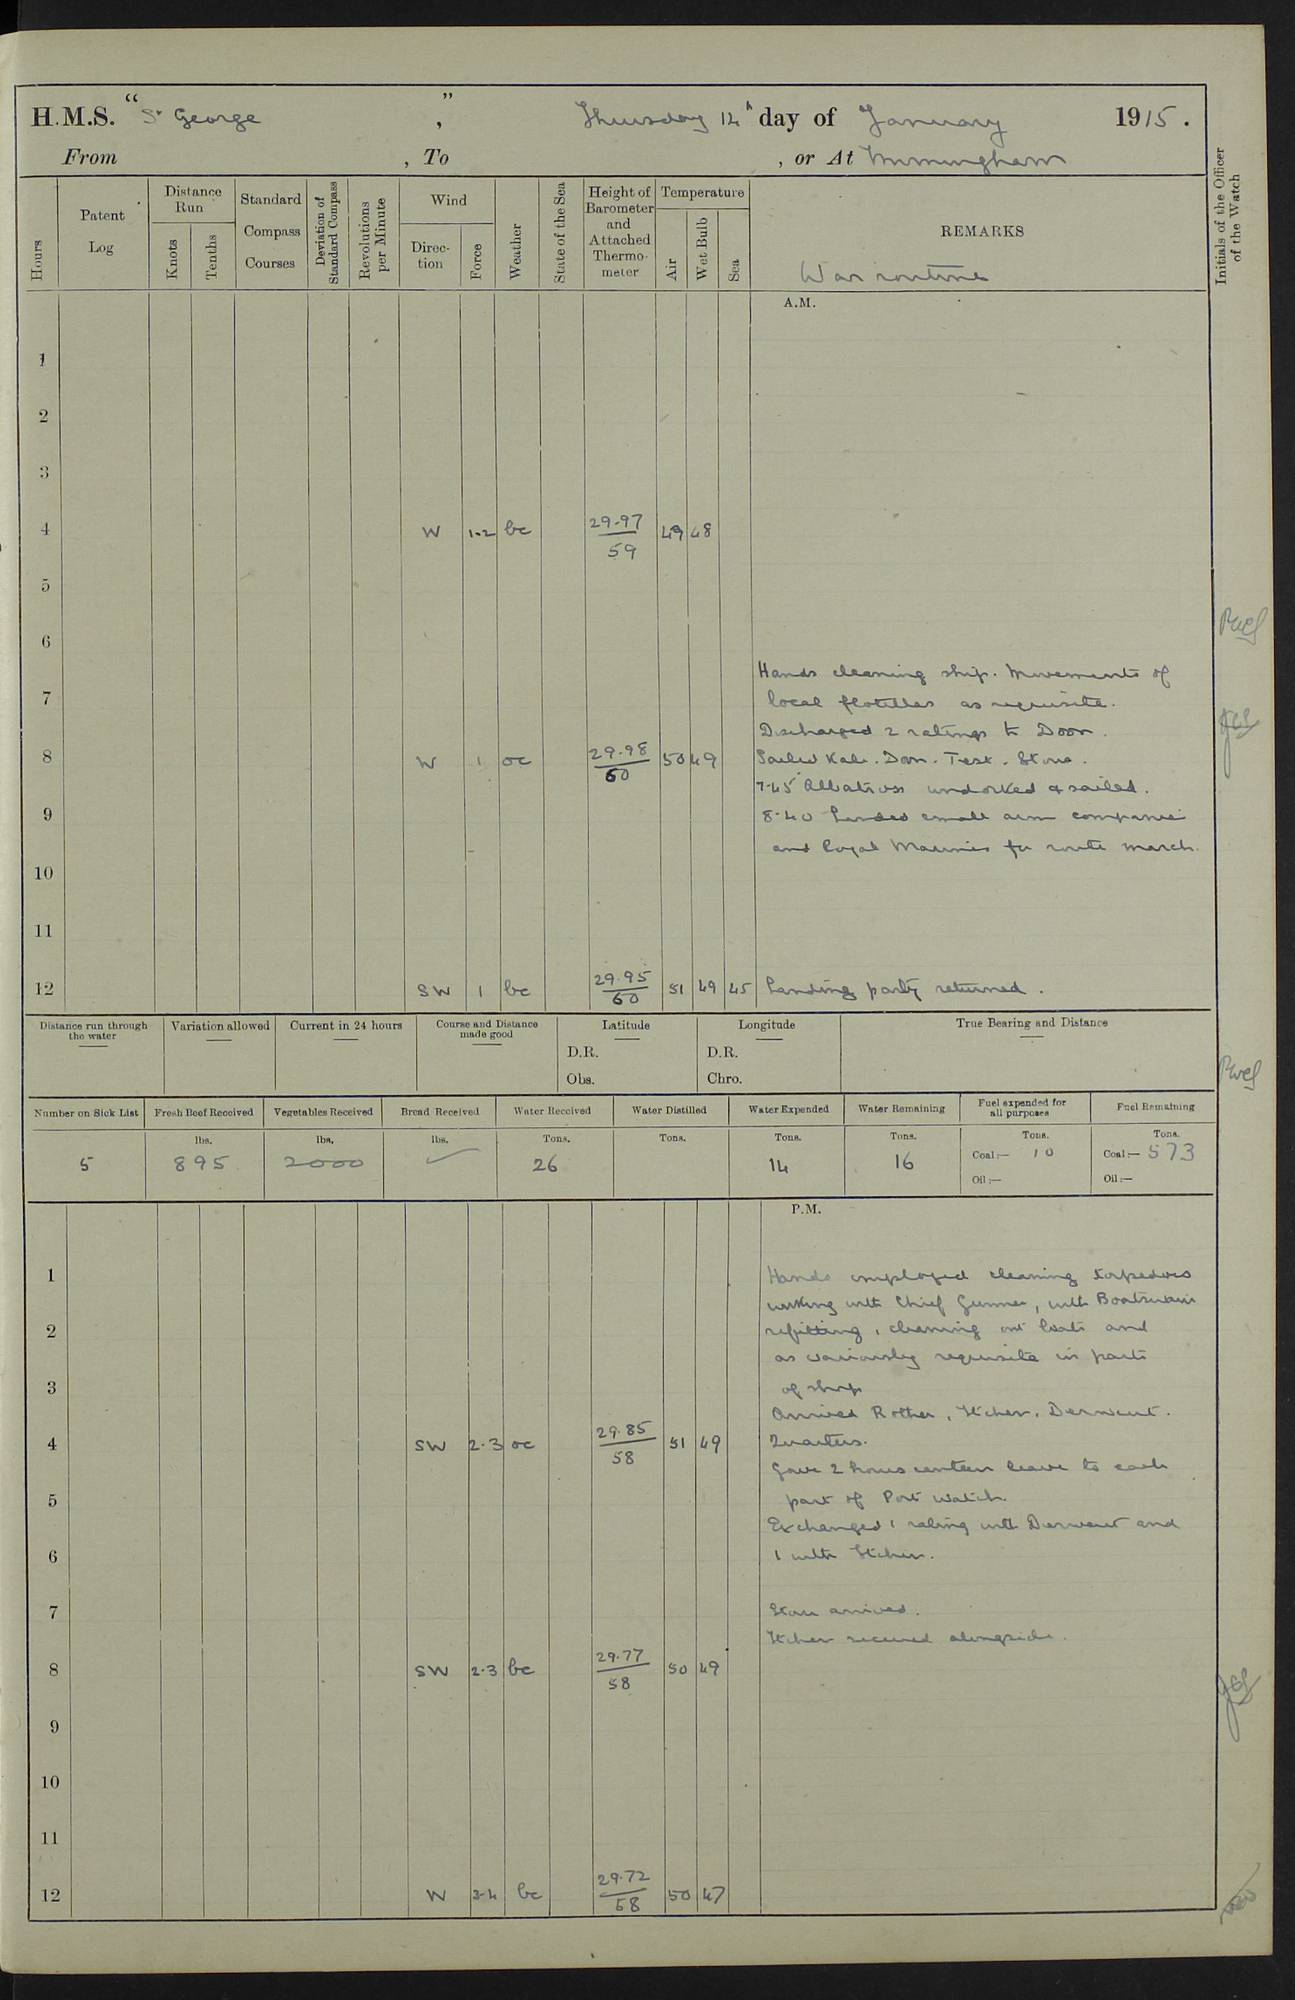 H.M.S. "St George", Thursday 14th day of January 1915.
From , To , or At Immingham
Hours
Patent Log
Distance Run
Knots
Tenths
Standard Compass Courses
Deviation of Standard Compass
Revolutions per Minute
Wind
Direction
Force
Weather
State of the Sea
Height of Barometer and Attached Thermometer
Temperature
Air
Wet Bulb
Sea
REMARKS
War routine
Initials of the Officer of the Watch
A.M.
1
2
3
4 W 1-2 bc 29.97/59 49 48
5
6
Hands cleaning ship. Movements of
7
local flotillas as requisite.
Discharged 2 ratings to Doon.
8 W 1 oc 29.98/60 50 49
Sailed Kale. Doon. Test. Stour.
7.45 Albatross undocked & sailed.
9
8.40 Landed small arm companies
and Royal Marines for route march.
10
11
12 SW 1 bc 29.95/60 51 49 45 Landing party returned.
Distance run through the water
Variation allowed
Current in 24 hours
Course and Distance made good
Latitude
D.R.
Obs.
Longitude
D.R.
Chro.
True Bearing and Distance
Number on Sick List
Fresh Beef Received
Vegetables Received
Bread Received
Water Received
Water Distilled
Water Expended
Water Remaining
Fuel expended for all purposes
Fuel Remaining
lbs. lbs. lbs. Tons. Tons. Tons. Tons. Tons. Tons.
5 895 2000 26 14 16 Coal:— 10 Coal:— 573
Oil:— Oil:—
P.M.
1 Hands employed cleaning torpedoes
working with Chief Gunner, with Boatswain
2 refitting, cleaning out boats and
as variously requisite in parts
3 of ship
Arrived Rother, Itchen, Derwent.
4 SW 2.3 oc 29.85/58 51 49 Quarters.
Gave 2 hours canteen leave to each
5 part of Port Watch.
Exchanged 1 rating with Derwent and
6 1 with Itchen.
7 Stour arrived.
Itchen secured alongside.
8 SW 2.3 bc 29.77/58 50 49
9
10
11
12 W 3-4 bc 29.72/58 50 47